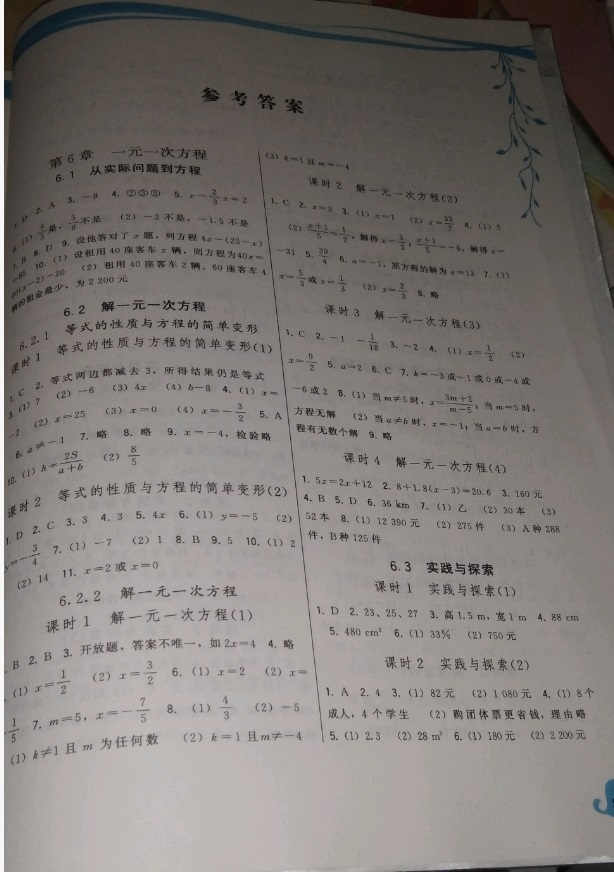 参考答案
第6章 一元一次方程
6.1 从实际问题到方程
1. D 2. A 3. －8 4. ②③⑤ 5. x－2/3x＝2
是, 不是 (2) －2不是, －1.5不是
8. D 9. 设他答对了x题, 列方程4x－(25－x)
10. (1) 设租用40座客车x辆, 则方程为40x＝
－20 (2) 租用40座客车2辆、60座客车4
辆的租金最少, 为2 200元
6.2 解一元一次方程
6.2.1 等式的性质与方程的简单变形
课时1 等式的性质与方程的简单变形(1)
1. C 2. 等式两边都减去3, 所得结果仍是等式
3. (1) 7 (2) －6 (3) 4x (4) b－8 4. (1) x＝
－2 (2) x＝25 (3) x＝0 (4) x＝－3/2 5. A
6. a≠－1 7. 略 8. 略 9. x＝－4, 检验略
10. (1) h＝2S/(a＋b) (2) 8/5
课时2 等式的性质与方程的简单变形(2)
1. D 2. C 3. 3 4. 3 5. 4x 6. (1) y＝－5 (2)
y＝－3/4 7. (1) －7 (2) 1 8. B 9. 5 10. (1) 2
(2) 14 11. x＝2或x＝0
6.2.2 解一元一次方程
课时1 解一元一次方程(1)
. B 2. B 3. 开放题, 答案不唯一, 如2x＝4 4. 略
. (1) x＝1/2 (2) x＝3/2 6. (1) x＝2 (2) x＝
1/5 7. m＝5, x＝－7/5 8. (1) 4/3 (2) －5
(1) k≠1且m为任何数 (2) k＝1且m≠－4
(3) k＝1且m＝－4
课时2 解一元一次方程(2)
1. C 2. x＝3 3. (1) x＝1 (2) x＝ 4. (1) 5
(2) (x＋1)/5＝1/2, 解得x＝3/2, (x＋1)/5＝－6, 解得x＝
－31 5. 39/4 6. a＝－1, 原方程的解为x＝13 7. (1)
x＝5/3或x＝1/3 (2) x＝2/3 8. 略
课时3 解一元一次方程(3)
1. C 2. －1 －1/18 3. －2 4. (1) x＝1/2 (2)
x＝9/2 5. a＝2 6. C 7. k＝－3或－1或0或－4或
－6或2 8. (1) 当m≠5时, x＝(3m＋2)/(m－5); 当m＝5时,
方程无解 (2) 当a≠b时, x＝－1; 当a＝b时, 方
程有无数个解 9. 略
课时4 解一元一次方程(4)
1. 5x＝2x＋12 2. 8＋1.8(x－3)＝20.6 3. 160元
4. B 5. D 6. 36 km 7. (1) 乙 (2) 30本 (3)
52本 8. (1) 12 390元 (2) 275件 (3) A种288
件, B种125件
6.3 实践与探索
课时1 实践与探索(1)
1. D 2. 23、25、27 3. 高1.5 m, 宽1 m 4. 88 cm
5. 480 cm³ 6. (1) 33% (2) 750元
课时2 实践与探索(2)
1. A 2. 4 3. (1) 82元 (2) 1 080元 4. (1) 8个
成人, 4个学生 (2) 购团体票更省钱, 理由略
5. (1) 2.3 (2) 28 m³ 6. (1) 180元 (2) 2 200元